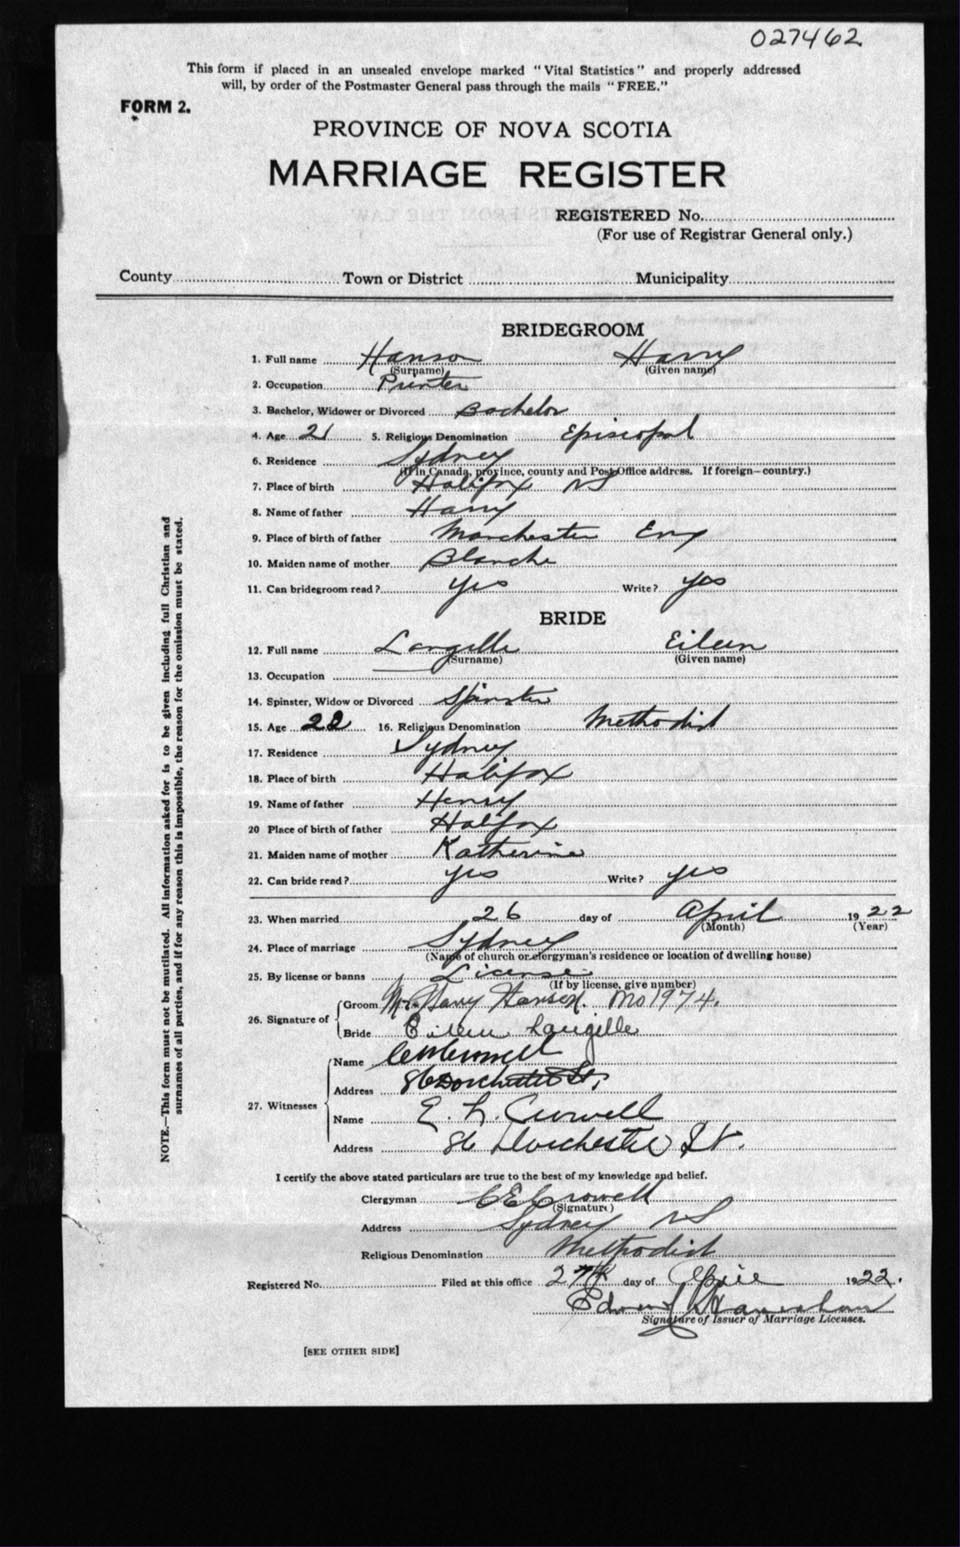 027462
This form if placed in an unsealed envelope marked "Vital Statistics" and properly addressed
will, by order of the Postmaster General pass through the mails "FREE."
FORM 2.
PROVINCE OF NOVA SCOTIA
MARRIAGE REGISTER
REGISTERED No.
(For use of Registrar General only.)
County Town or District Municipality
BRIDEGROOM
1. Full name Hanson Harry
(Surname) (Given name)
2. Occupation Printer
3. Bachelor, Widower or Divorced Bachelor
4. Age 21 5. Religious Denomination Episcopal
6. Residence Sydney
(If in Canada, province, county and Post Office address. If foreign—country.)
7. Place of birth Halifax NS
8. Name of father Harry
9. Place of birth of father Manchester Eng
10. Maiden name of mother Blanche
11. Can bridegroom read? yes Write? yes
BRIDE
12. Full name Langille Eileen
(Surname) (Given name)
13. Occupation
14. Spinster, Widow or Divorced Spinster
15. Age 22 16. Religious Denomination Methodist
17. Residence Sydney
18. Place of birth Halifax
19. Name of father Henry
20 Place of birth of father Halifax
21. Maiden name of mother Katherine
22. Can bride read? yes Write? yes
23. When married 26 day of April 1922
(Month) (Year)
24. Place of marriage Sydney
(Name of church or clergyman's residence or location of dwelling house)
25. By license or banns License
(If by license, give number)
26. Signature of Groom Mr. Harry Hanson. No 1974.
Bride Eileen Langille
27. Witnesses Name
Address 86 Dorchester St,
Name E. L. Crowell
Address 86 Dorchester St.
I certify the above stated particulars are true to the best of my knowledge and belief.
Clergyman C E Crowell
(Signature)
Address Sydney NS
Religious Denomination Methodist
Registered No. Filed at this office 27th day of April 1922.
Signature of Issuer of Marriage Licenses.
[SEE OTHER SIDE]
NOTE.—This form must not be mutilated. All information asked for is to be given including full Christian and
surnames of all parties, and if for any reason this is impossible, the reason for the omission must be stated.